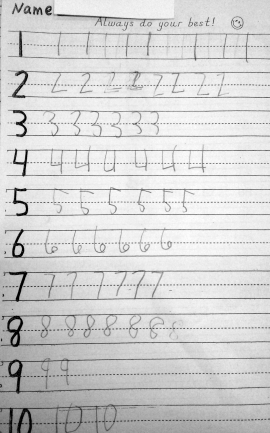 Name
Always do your best!
1 1 1 1 1 1 1 1 1
2 2 2 2 2 2 2 2 2
3 3 3 3 3 3 3
4 4 4 4 4 4 4
5 5 5 5 5 5 5
6 6 6 6 6 6 6
7 7 7 7 7 7 7
8 8 8 8 8 8 8 8
9 9 9
10 10 10